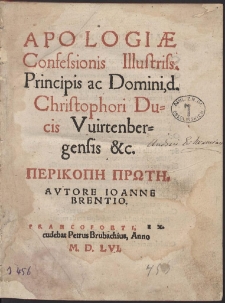 APOLOGIÆ
Confessionis Illustriss.
Principis ac Domini, d.
Christophori Du-
cis Vuirtenber-
gensis &c.
ΠΕΡΙΚΟΠΗ ΠΡΩΤΗ,
AVTORE IOANNE
BRENTIO.
FRANCOFORTI, EX-
cudebat Petrus Brubachius, Anno
M. D. LVI.